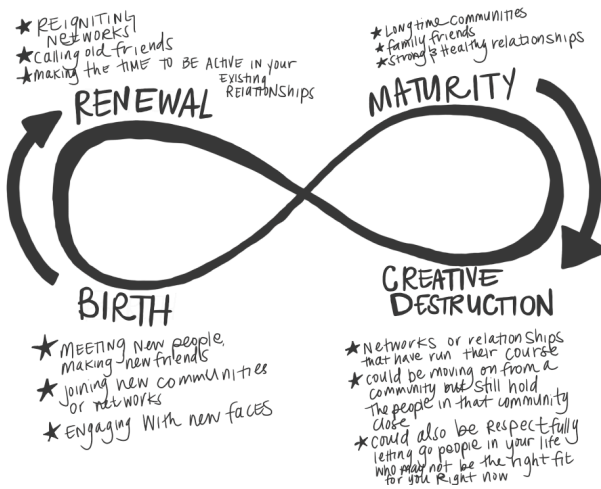 ★ REIGNITING
NETWORKS
★ calling old friends
★ making the TIME TO BE ACTIVE IN your
EXISTING
RELATIONSHIPS
RENEWAL
★ Longtime communities
★ family friends
★ strong & Healthy relationships
MATURITY
BIRTH
★ MEETING New people,
making new friends
★ joining new communities
or networks
★ ENGAGING WITH new FACES
CREATIVE
DESTRUCTION
★ NETWORKS OR relationships
that have run their course
★ could be moving on from a
community but still hold
The people in that community
close
★ could also be RESPECTFULLY
letting go people in your life
who may not be the right fit
for you Right now